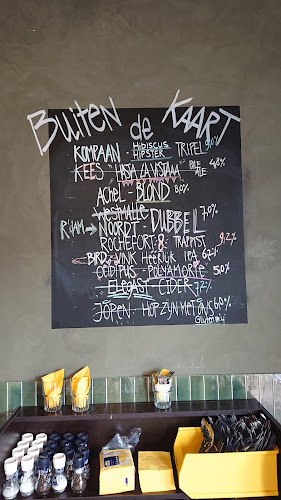 Buiten de KAART
KOMPAAN - HIBISCUS HIPSTER TRIPEL 9,0%
KEES - HASTA LA VISTAAA PALE ALE 4,8%
ACHEL - BLOND 8,0%
WESTMALLE
RIJAM → NOORDT - DUBBEL 7,0%
ROCHEFORT 8 - TRAPPIST 9,2%
BIRD - VINK HEERLIJK IPA 6,2%
OEDIPUS - POLYAMORIE 5,0%
ELEGAST CIDER 7,2%
JOPEN - HOP ZIJN MET ONS 6,0%